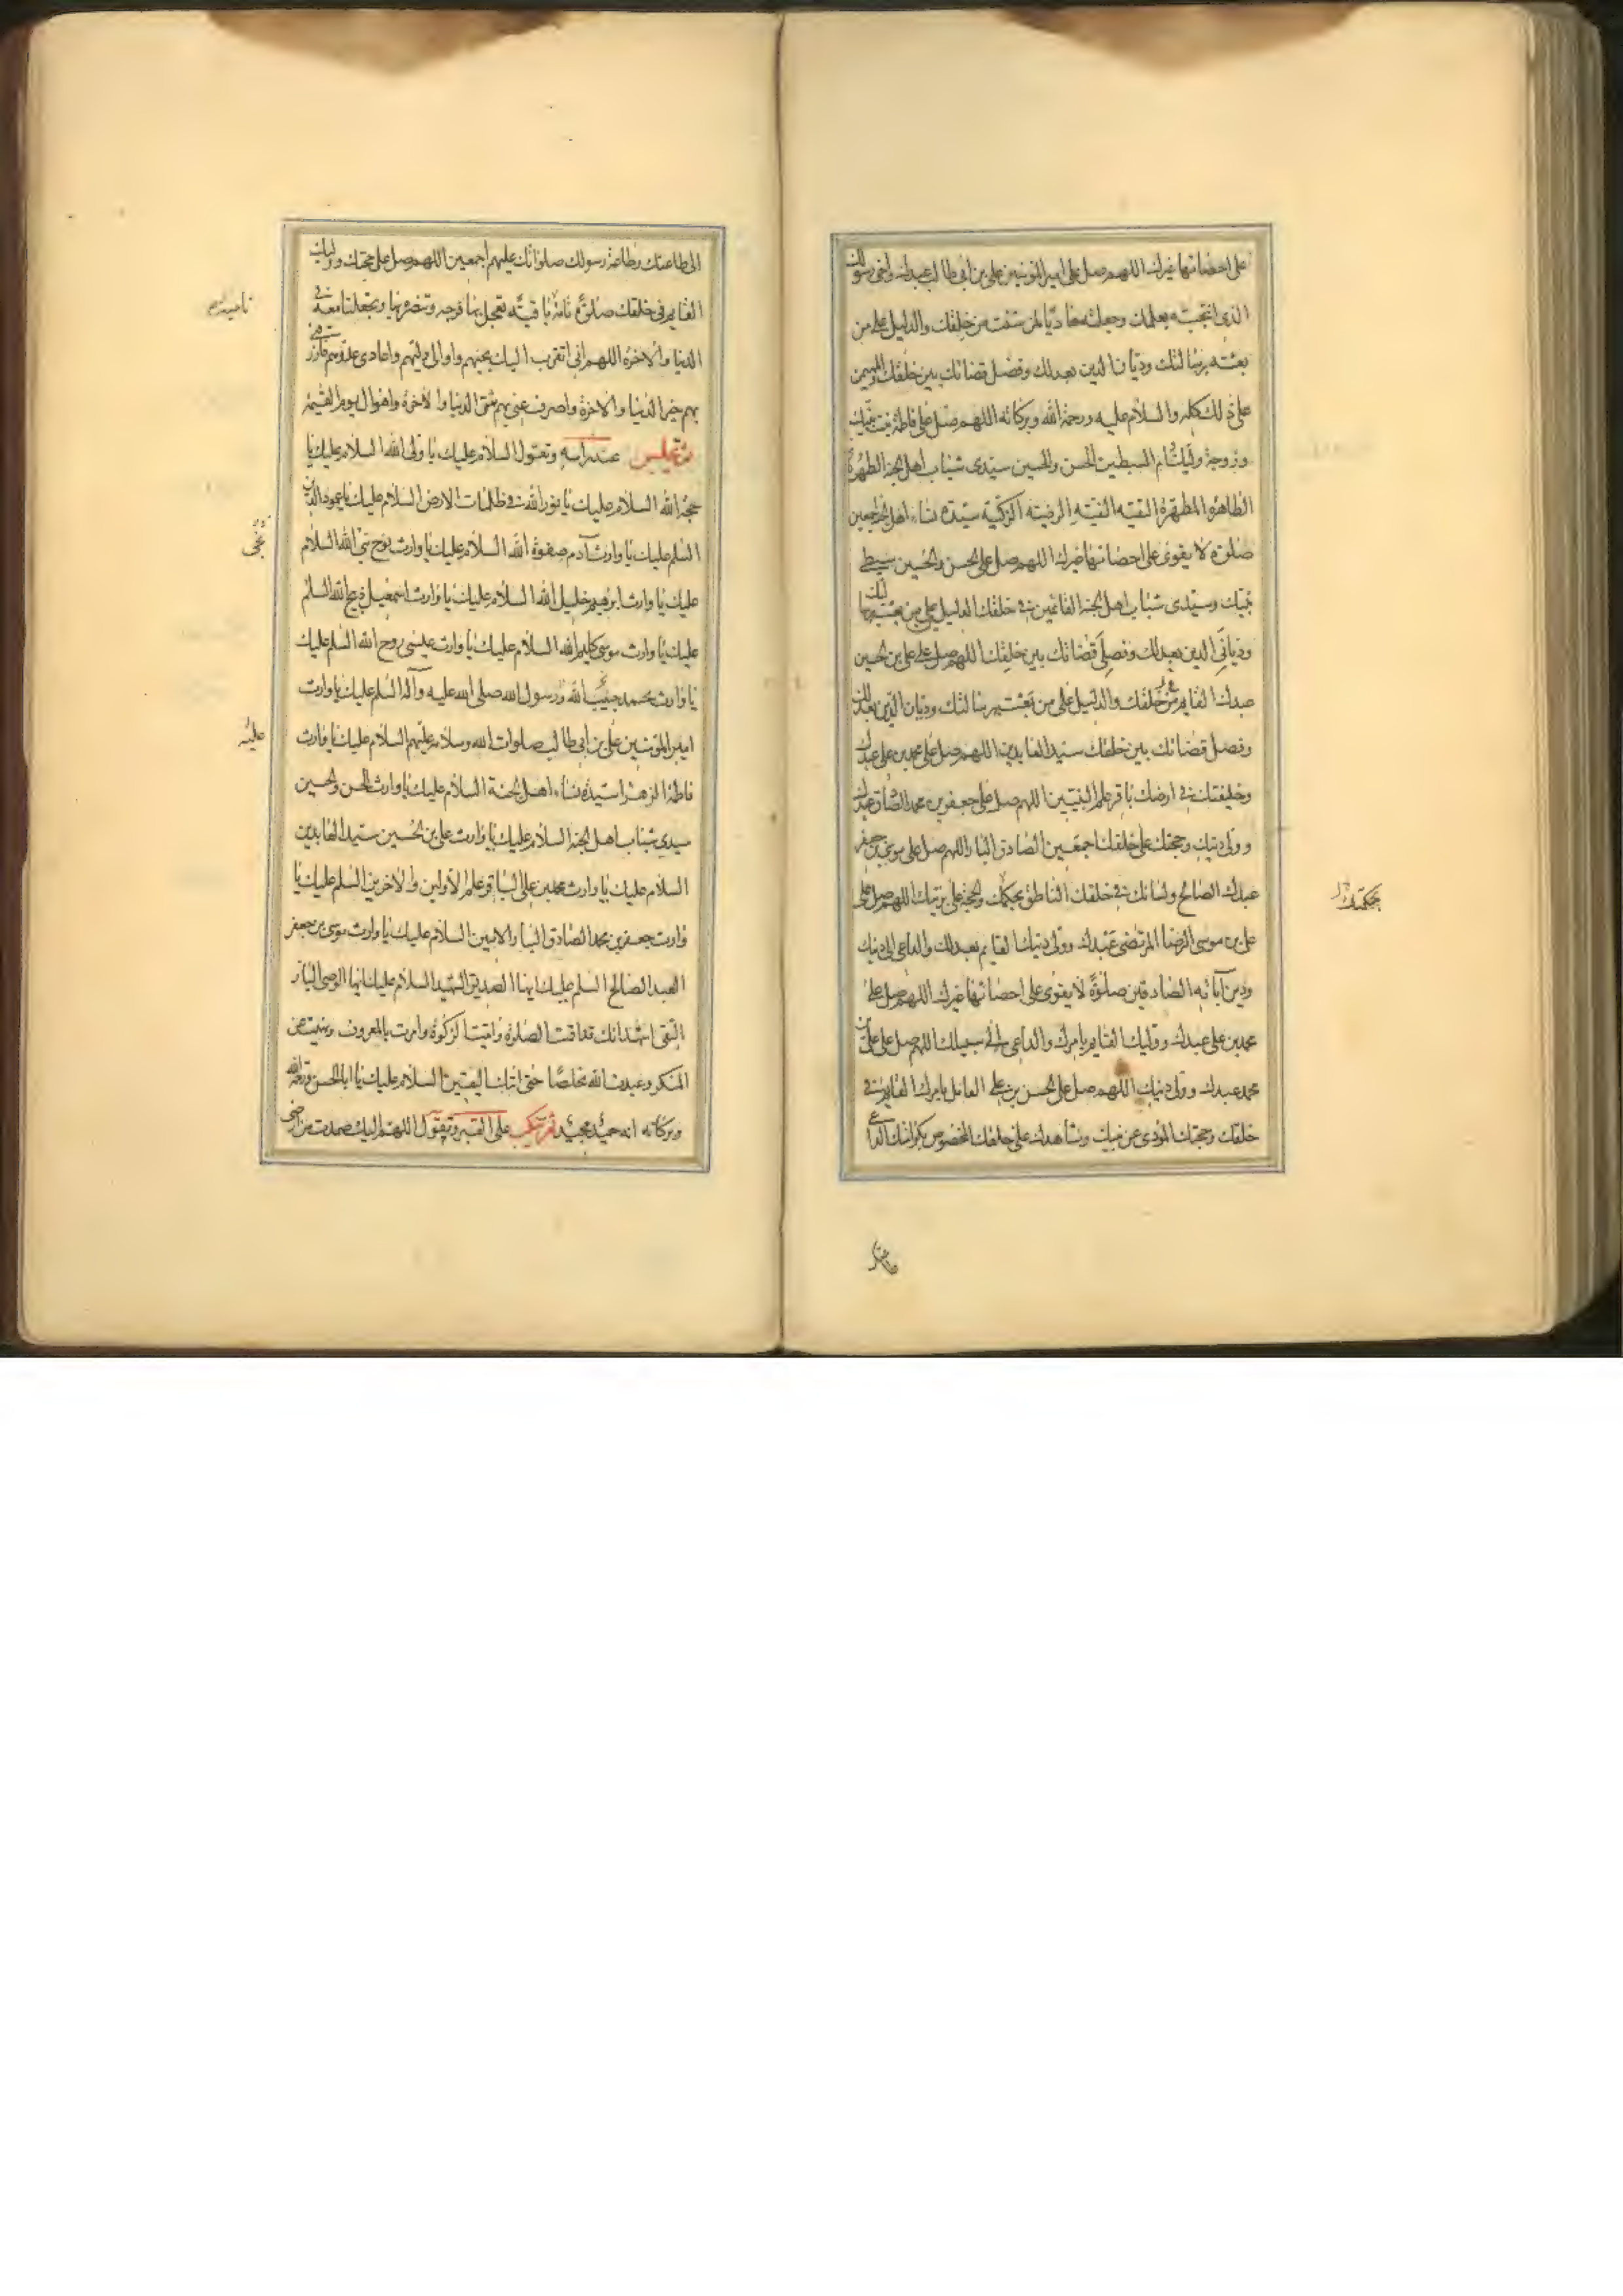 على احصائها غيرك اللهم صل على امير المؤمنين على بن ابى طالب عبدك واخى رسولك
الذى انتجبته بعلمك وجعلته هاديا لمن شئت من خلقك والدليل على من
بعثته برسالتك وديان الدين بعدلك وفصل قضائك بين خلقك والمهيمن
على ذلك كله والسلام عليه ورحمة الله وبركاته اللهم صل على فاطمة بنت نبيك
وزوجة وليك وام السبطين الحسن والحسين سيدى شباب اهل الجنة الطهرة
الطاهرة المطهرة التقية النقية الرضية الزكية سيدة نساء اهل الجنة اجمعين
صلوة لا يقوى على احصائها غيرك اللهم صل على الحسن والحسين سبطى
نبيك وسيدى شباب اهل الجنة القائمين فى خلقك الدليل على من بعثت
وديانى الدين بعدلك وفصلى قضائك بين خلقك اللهم صل على على بن الحسين
عبدك القايم فى خلقك والدليل على من بعثت برسالتك وديان الدين بعدلك
وفصل قضائك بين خلقك سيد العابدين اللهم صل على محمد بن على عبدك
وخليفتك فى ارضك باقر علم النبيين اللهم صل على جعفر بن محمد الصادق عبدك
وولى دينك وحجتك على خلقك اجمعين الصادق البار اللهم صل على موسى بن جعفر
عبدك الصالح ولسانك فى خلقك الناطق بحكمك والحجة على بريتك اللهم صل على
بحكمتك
على بن موسى الرضا المرتضى عبدك وولى دينك القايم بعدلك والداعى الى دينك
ودين آبائه الصادقين صلوة لا يقوى على احصائها غيرك اللهم صل على
محمد بن على عبدك ووليك القايم بامرك والداعى الى سبيلك اللهم صل على على بن
محمد عبدك وولى دينك اللهم صل على الحسن بن على العامل بامرك القايم فى
خلقك وحجتك المؤدى عن نبيك وشاهدك على خلقك المخصوص بكرامتك الداعى
الى طاعتك وطاعة رسولك صلواتك عليهم اجمعين اللهم صل على حجتك ووليك
القايم فى خلقك صلوة تامة نامية باقية تعجل بها فرجه وتنصره بها وتجعلنا معه فى
الدنيا والاخرة اللهم انى اتقرب اليك بحبهم واوالى وليهم واعادى عدوهم فارزقنى
بهم خير الدنيا والاخرة واصرف عنى بهم شر الدنيا والاخرة واهوال يوم القيمة
ثم تجلس عند راسه وتقول السلام عليك يا ولى الله السلام عليك يا
حجة الله السلام عليك يا نور الله فى ظلمات الارض السلام عليك يا عمود الدين
السلم عليك يا وارث آدم صفوة الله السلام عليك يا وارث نوح نبى الله السلام
عليك يا وارث ابرهيم خليل الله السلام عليك يا وارث اسمعيل ذبيح الله السلم
عليك يا وارث موسى كليم الله السلام عليك يا وارث عيسى روح الله السلم عليك
يا وارث محمد حبيب الله ورسول الله صلى الله عليه وآله السلم عليك يا وارث
امير المؤمنين على بن ابى طالب صلوات الله وسلامه عليهم السلام عليك يا وارث
عليه
فاطمة الزهراء سيدة نساء اهل الجنة السلام عليك يا وارث الحسن والحسين
سيدى شباب اهل الجنة السلام عليك يا وارث على بن الحسين سيد العابدين
السلام عليك يا وارث محمد بن على الباقر علم الاولين والاخرين السلم عليك يا
وارث جعفر بن محمد الصادق البار الامين السلام عليك يا وارث موسى بن جعفر
العبد الصالح السلم عليك ايها الصديق الشهيد السلام عليك ايها الوصى البار
التقى اشهد انك قد اقمت الصلوة واتيت الزكوة وامرت بالمعروف ونهيت عن
المنكر وعبدت الله مخلصا حتى اتاك اليقين السلام عليك يا ابا الحسن ورحمة الله
وبركاته انه حميد مجيد ثم تنكب على القبر وتقول اللهم اليك صمدت من ارضى